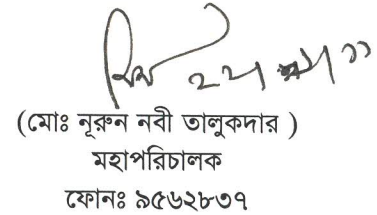 (মোঃ নূরুন নবী তালুকদার )
মহাপরিচালক
ফোনঃ ৯৫৬২৮৩৭